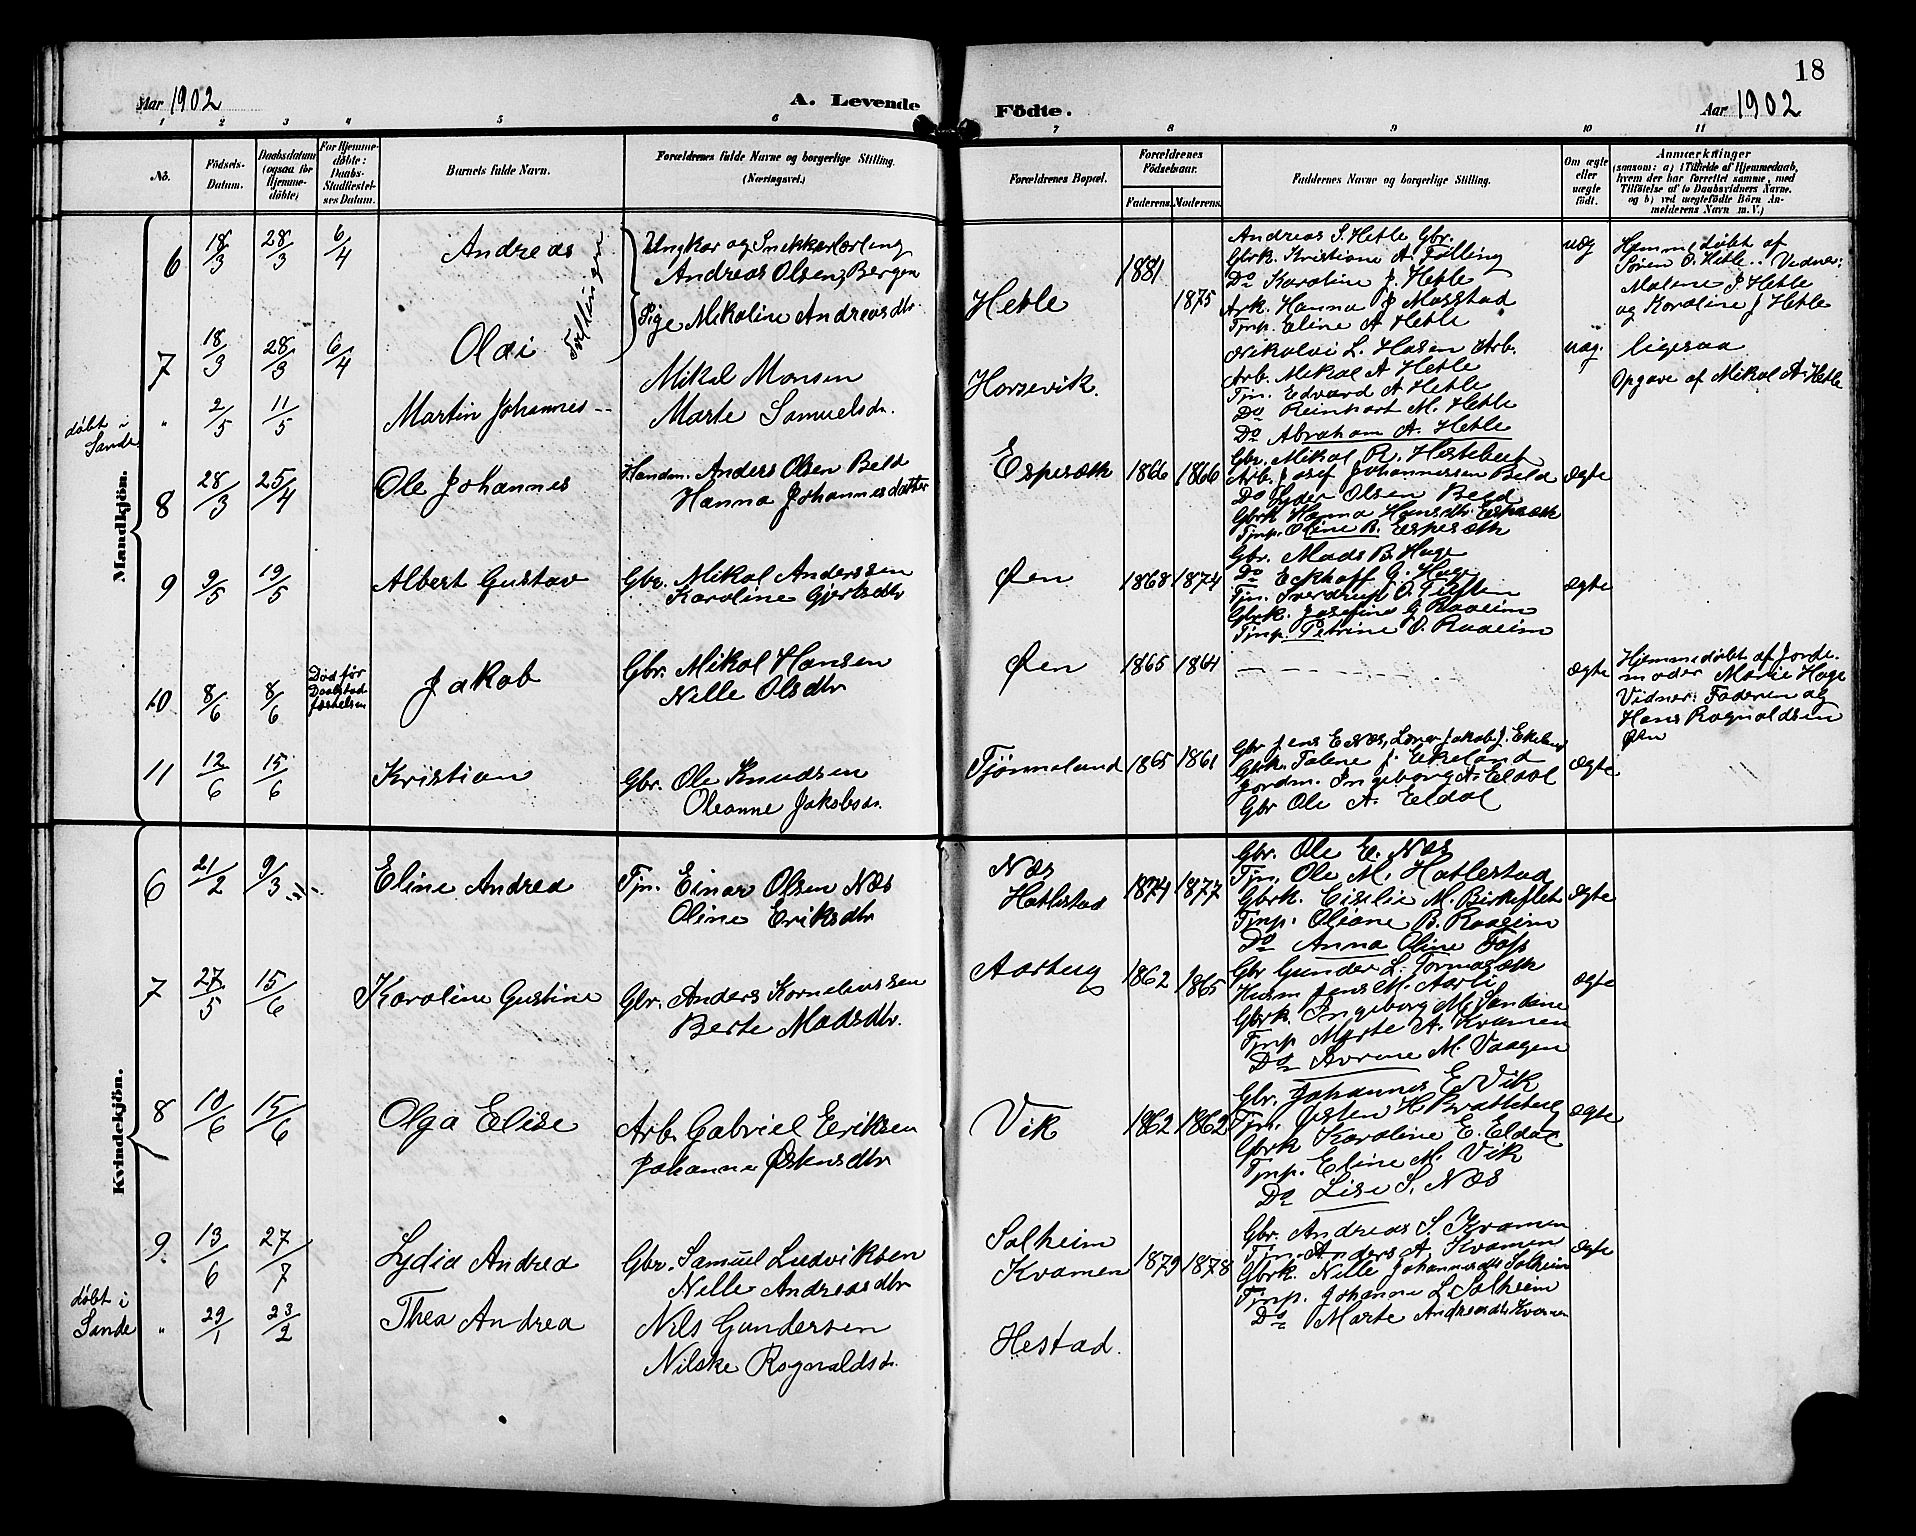 18
Aar 1902
A. Levende
Födte.
Aar 1902
1 2 3 4 5 6 7 8 9 10 11
No.
Födsels-Datum.
Daabsdatum (ogsaa for Hjemmedöbte)
For Hjemmedöbte: Daabs-Stadfæstelses Datum.
Barnets fulde Navn.
Forældrenes fulde Navne og borgerlige Stilling. (Næringsvei.)
Forældrenes Bopæl.
Forældrenes Födselsaar.
Faderens. Moderens.
Faddernes Navne og borgerlige Stilling.
Om ægte eller uægte födt.
Anmærkninger
(saasom: a) i Tilfælde af Hjemmedaab, hvem der har forrettet samme, med Tilföielse af to Daabsvidners Navne. og b) ved uægtefödte Börn Anmelderens Navn m. V.)
Mandkjön.
6 18/3 28/3 6/4 Andreas
Tvillinger
Ungkar og Snekkerlærling
Andreas Olsen, Bergen
Pige Mikoline Andreasdtr
Hetle
1881 1875
Andreas S. Hetle Gbr.
Gbrk. Kristiane A. Fölling
Do Karoline J. Hetle
Ark. Hanna J Masstad
Tjnp. Eline A Hetle
uæg
Hjemmedøbt af
Søren O. Hetle. Vidner:
Malene J. Hetle
og Karoline J Hetle
7 18/3 28/3 6/4 Olai
Nikolai L. Hasen Arb.
Arb. Mikal A Hetle
Tjn. Edvard A Hetle
Do Reinhart M. Hetle
Do Abraham A. Hetle
uæg.
ligesaa
Opgave af Mikal A. Hetle
døbt i Sande
" 2/5 11/5 Martin Johannes
Mikal Monsen
Marte Samuelsdr.
Horsevik.
8 28/3 25/4 Ole Johannes
Handm. Anders Olsen Beld
Hanna Johannesdatter
Espesæth 1866 1866
Gbr. Mikal R. Hestebeit
Arb. Josef Johannessen Beld
Do Peder Olsen Beld
Gbrk Hanna Hansdtr. Espesæth
Tjnp. Oline R. Espesæth
ægte
9 9/5 19/5 Albert Gustav
Gbr. Mikal Anderssen
Karoline Gjertsdtr
Øen 1868 1874
Gbr. Mads B. Hage
Do Eckhoff G. Hage
Tjn. Sverdrup O. Tefften
Gbrk. Josefine G Raaeim
Tjnp. Petrine O. Raaeim
ægte
10 8/6 8/6
Død før Daabstadfæstelsen
Jakob
Gbr. Mikal Hansen
Nille Olsdtr
Øen 1865 1864
ægte
Hjemmedøbt af Jordemoder Marie Hage
Vidner: Faderen og
Hans Rognaldsen
Øen
11 12/6 15/6 Kristian
Gbr. Ole Knudsen
Oleanne Jakobsdr.
Tjønneland 1865 1861
Gbr Jens E Næs, Lærer Jakob J. Ekeland
Gbrk. Talene J. Ekeland
Jordm. Ingeborg A. Eldal
Gbr Ole A. Eldal
ægte
Kvindekjön.
6 21/2 9/3 Eline Andrea
Tjn. Einar Olsen Næs
Oline Eriksdtr
Næs
Hatlestad
1874 1877
Gbr. Ole E. Næs
Tjn. Ole M. Hatlestad
Gbrk. Eisilie M. Birkeflet
Tjnp. Oliane B. Raaeim
Do Anna Oline Foss
ægte
7 27/5 15/6 Karoline Gustine
Gbr. Anders Korneliussen
Berte Madsdtr.
Aarberg 1862 1865
Gbr Gunder L. Tormosæth
Husm Jens M. Aarli
Gbrk. Ingeborg M. Sandene
Tjnp Marte A. Kvamen
Do M. Vaagen
ægte
8 10/6 15/6 Olga Elise
Arb. Gabriel Eriksen
Johanne Østensdtr
Vik 1862 1862
Gbr. Johannes E. Vik
Tjn. Østen H Bratteberg
Gbrk Karoline E. Eldal
Tjnp. Eline M. Vik
Do Lise S. Næs
ægte
9. 13/6 27/7 Lydia Andrea
Gbr. Samuel Ludviksen
Nille Andreasdtr
Solheim
Kvamen
1879 1878
Gbr. Andreas S. Kvamen
Tjn. Anders A. Kvamen
Gbrk. Nille Johannesdtr Solheim
Tjnp. Johanne L. Solheim
Do Marte Andreasdtr Kvamen
ægte
døbt i Sande
" 29/1 23/2 Thea Andrea
Nils Gundersen
Nilske Rognaldsdr.
Hestad.